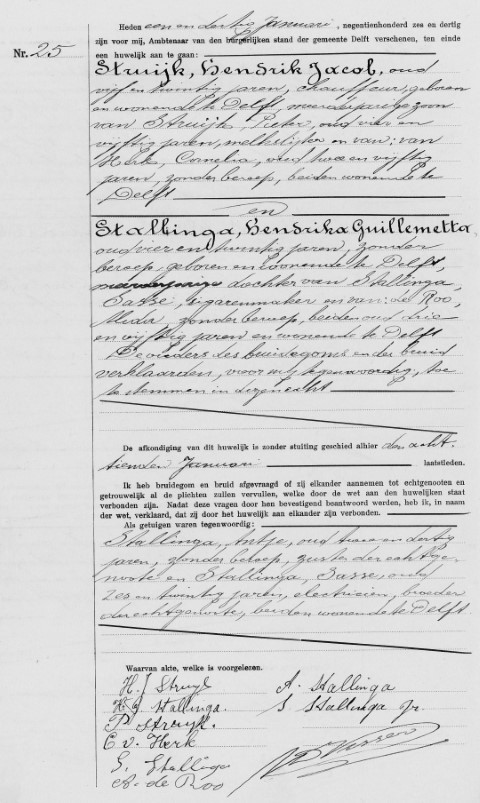 Nr. 25
Heden een en dertig Januari, negentienhonderd zes en dertig
zijn voor mij, Ambtenaar van den burgerlijken stand der gemeente Delft verschenen, ten einde
een huwelijk aan te gaan:
Struijk, Hendrik Jacob, oud
vijf en twintig jaren, chauffeur, geboren
en wonende te Delft, meerderjarige zoon
van Struijk, Pieter, oud vier en
vijftig jaren, melkslijter en van: van
Herk, Cornelia, oud twee en vijftig
jaren, zonder beroep, beiden wonende te
Delft
en
Stallinga, Hendrika Guillemetta,
oud vier en twintig jaren, zonder
beroep, geboren en wonende te Delft,
meerderjarige dochter van Stallinga,
Sasse, sigarenmaker en van: de Roo,
zonder beroep, beiden oud drie
en vijftig jaren en wonende te Delft
De ouders des bruidegoms en der bruid
verklaarden, voor mij tegenwoordig, toe
te stemmen in dezen echt
De afkondiging van dit huwelijk is zonder stuiting geschied alhier den acht-
tienden Januari laatstleden.
Ik heb bruidegom en bruid afgevraagd of zij elkander aannemen tot echtgenooten en
getrouwelijk al de plichten zullen vervullen, welke door de wet aan den huwelijken staat
verbonden zijn. Nadat deze vragen door hen bevestigend beantwoord werden, heb ik, in naam
der wet, verklaard, dat zij door het huwelijk aan elkander zijn verbonden.
Als getuigen waren tegenwoordig:
Stallinga, Antje, oud twee en dertig
jaren, zonder beroep, zuster der echtge-
noote en Stallinga, Sasse, oud
zes en twintig jaren, electricien, broeder
der echtgenoote, beiden wonende te Delft
Waarvan akte, welke is voorgelezen.
H. J Struyk
H. G Stallinga.
P. Struyk.
C. v. Herk
S. Stallinga
A. de Roo
A. Stallinga
S Stallinga Jr.